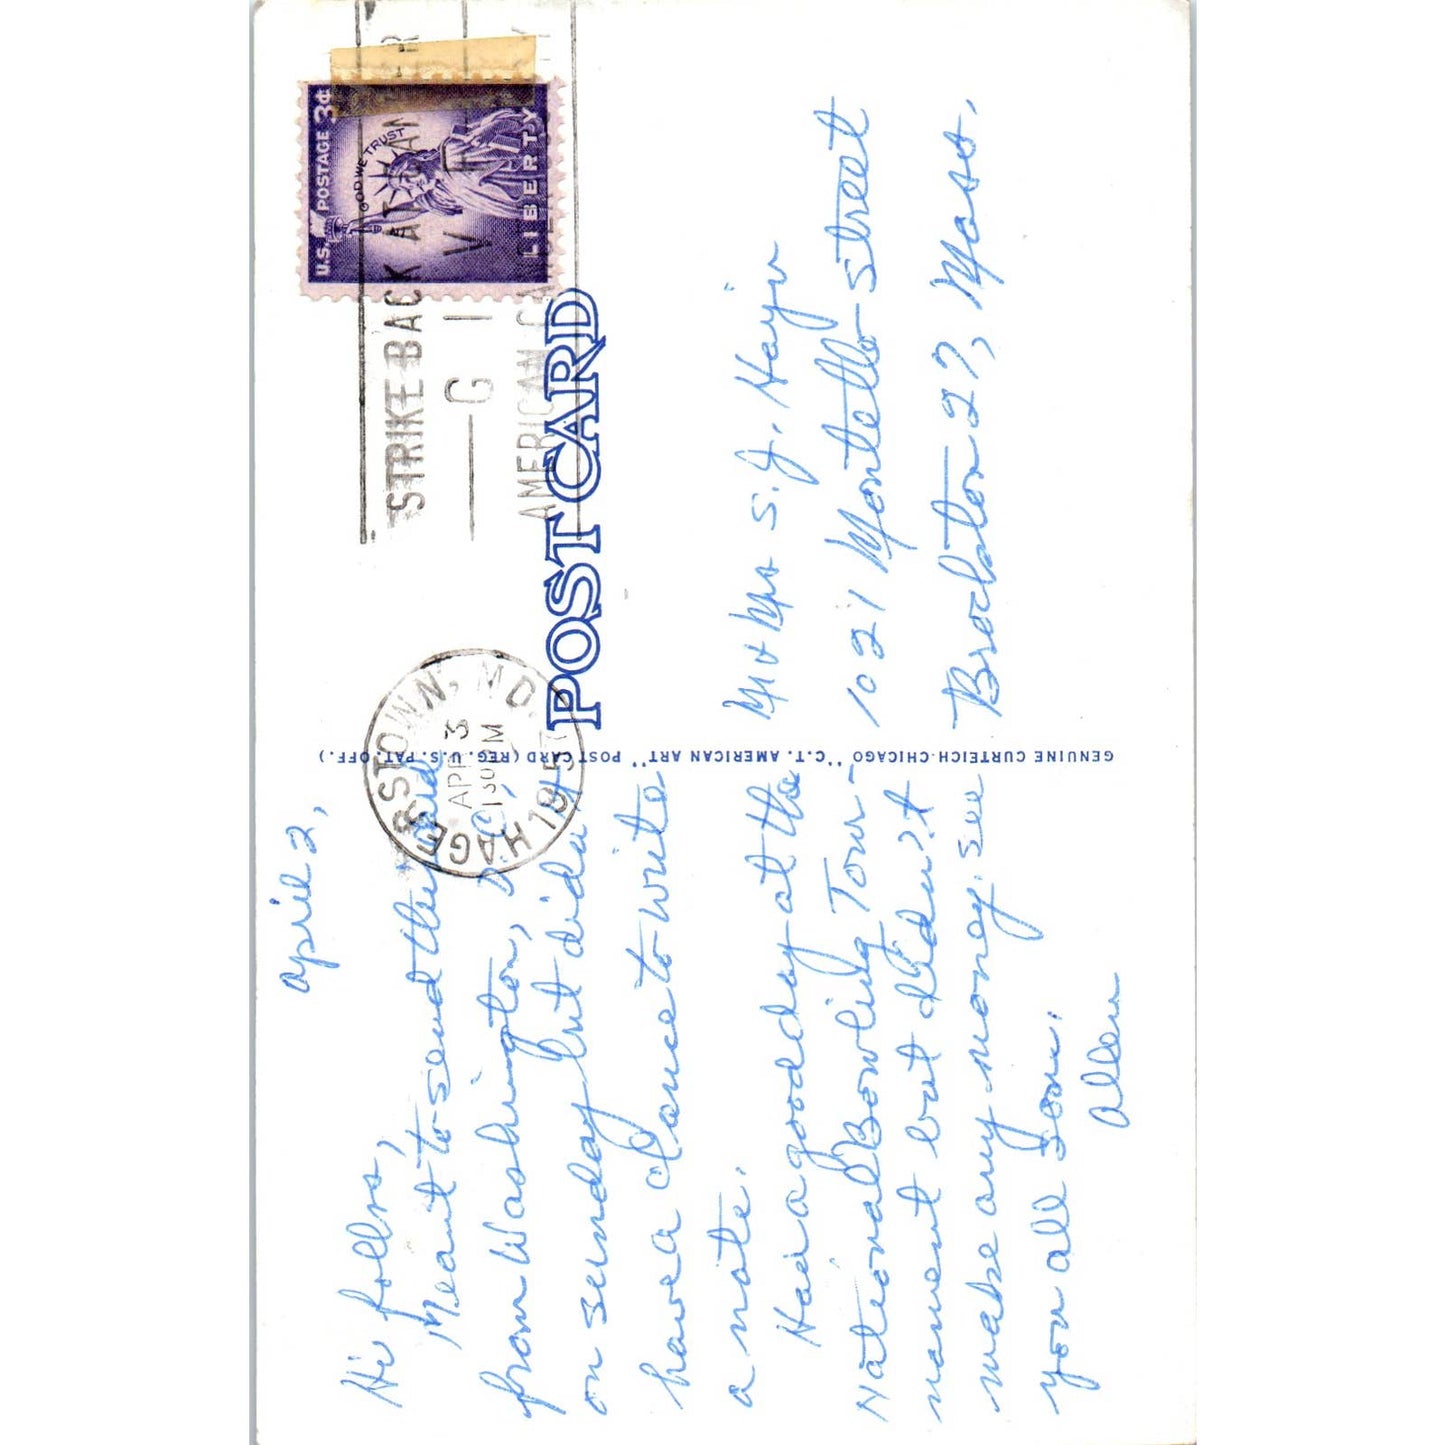 April 2,
Hi folks,
Meant to send this card
from Washington, D.C.
on Sunday but didn't
have a chance to write
a note.
Had a good day at the
National Bowling Tour-
nament but didn't
make any money. See
you all soon.
Allen
GENUINE CURTEICH-CHICAGO "C.T. AMERICAN ART" POST CARD (REG. U.S. PAT. OFF.)
POST CARD
HAGERSTOWN, MD.
APR 3
1 30 PM
1957
STRIKE BACK AT CANCER
GIVE
AMERICAN CANCER
U.S. POSTAGE 3¢
IN GOD WE TRUST
LIBERTY
Mr & Mrs S. J.
1021 Montello Street
Brockton 27, Mass.